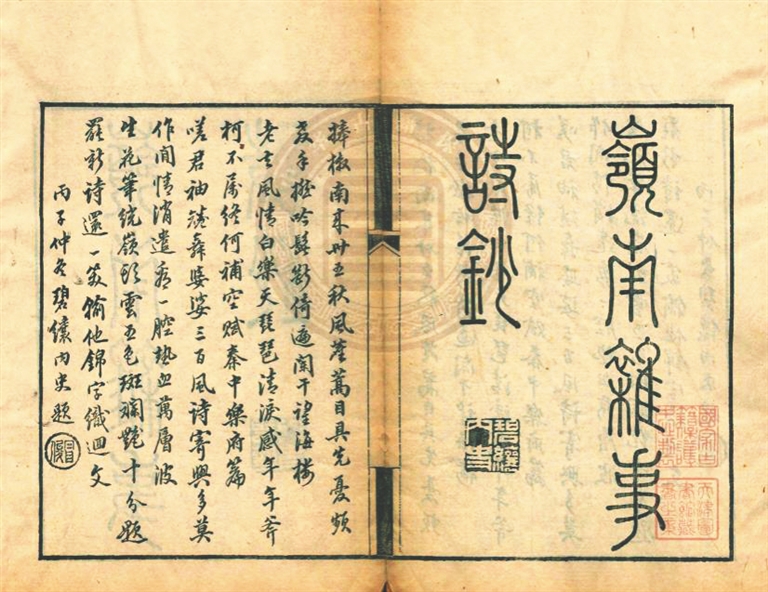 嶺南雜事
詩鈔
捧檄南來卅五秋風塵蒿目具先憂頻
叉手撚吟髭斷倚遍闌干望海樓
老去風情白樂天琵琶清淚感年年斧
柯不終何補空賦秦中樂府篇
嗟君袖舞婆娑三百風詩寄興多莫
作閒情消遣看一腔熱血萬層波
生花筆繞嶺頭雲五色斑斕艷十分題
罷新詩還一笑輸他錦字織迴文
丙子仲冬碧儂內史題